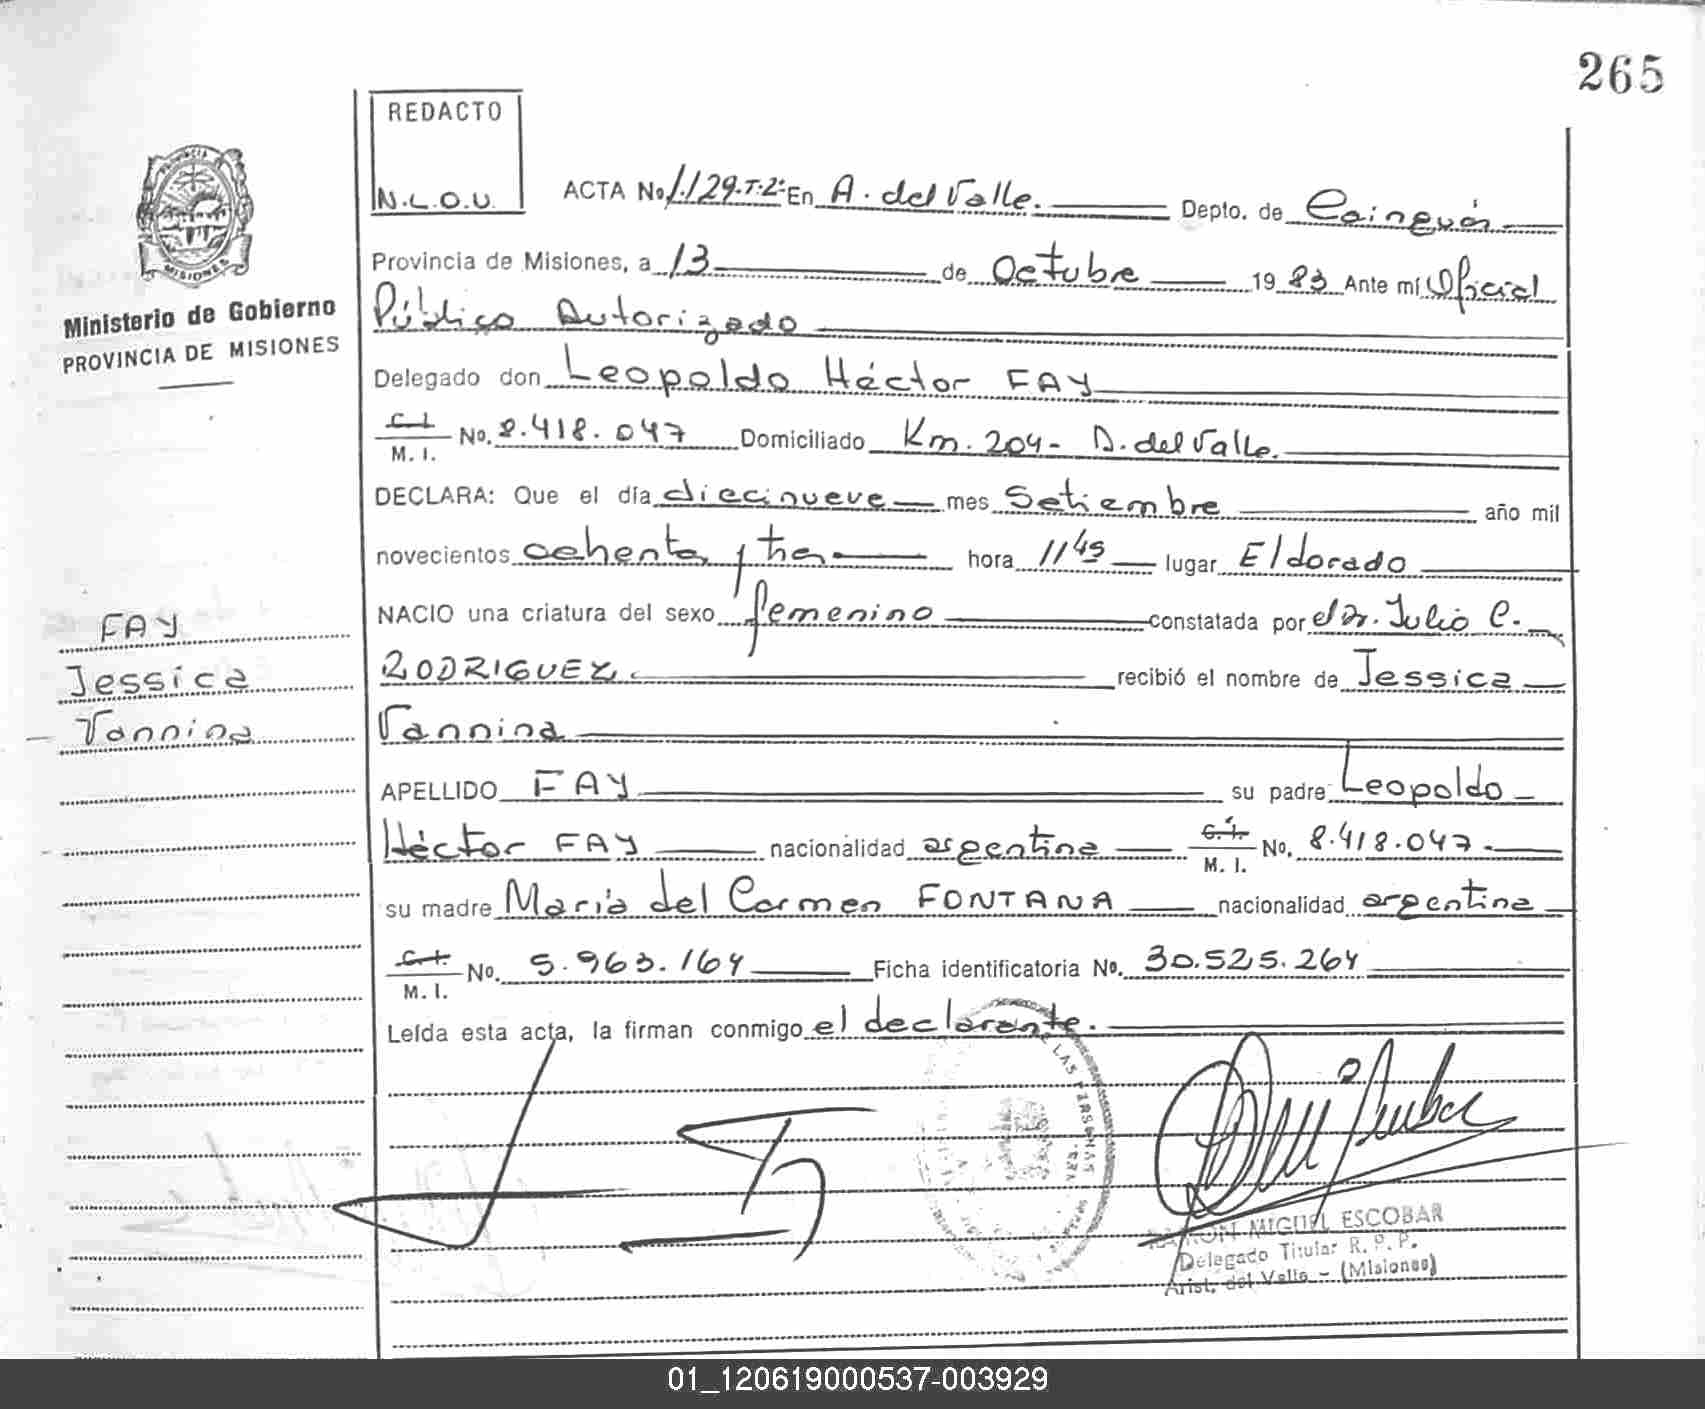 265
REDACTO
N.L.O.U.
ACTA No. 1.129.T.2º En A. del Valle. Depto. de Cainguás
Provincia de Misiones, a 13 de Octubre 1983 Ante mí Oficial
Público Autorizado
Ministerio de Gobierno
PROVINCIA DE MISIONES
Delegado don Leopoldo Héctor FAY
C.I. M.I. No. 8.418.047 Domiciliado Km. 204- A. del Valle.
DECLARA: Que el día diecinueve mes Setiembre año mil
novecientos ochenta y tres hora 11 45 lugar Eldorado
NACIO una criatura del sexo femenino constatada por el Dr. Julio C.
RODRIGUEZ. recibió el nombre de Jessica
Vannina
FAY
Jessica
Vannina
APELLIDO FAY su padre Leopoldo
Héctor FAY nacionalidad argentina C.I. M.I. No. 8.418.047.
su madre María del Carmen FONTANA nacionalidad argentina
C.I. M.I. No. 5.963.164 Ficha identificatoria No. 30.525.264
Leída esta acta, la firman conmigo el declarante.
LAS PERSONAS
RAMON MIGUEL ESCOBAR
Delegado Titular R. P. P.
Arist. del Valle - (Misiones)
PROVINCIA
MISIONES
01_120619000537-003929